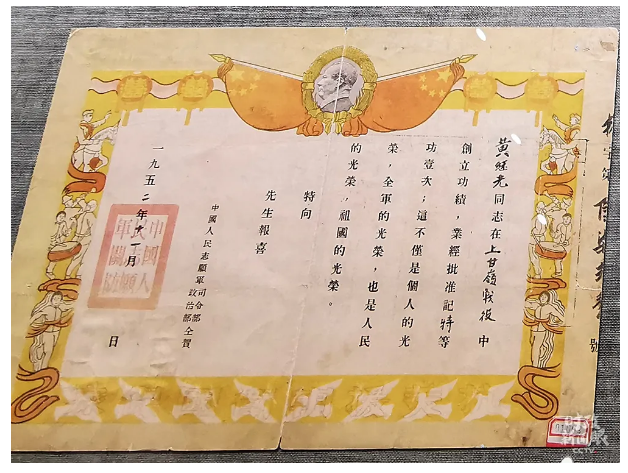 黃继光同志在上甘嶺战役中
創立功績，業經批准記特等
功壹次；這不僅是個人的光
榮，全軍的光榮，也是人民
的光榮，祖國的光榮。
特向
先生報喜
中國人民志願軍司令部
政治部仝賀
一九五二年十一月
日
號